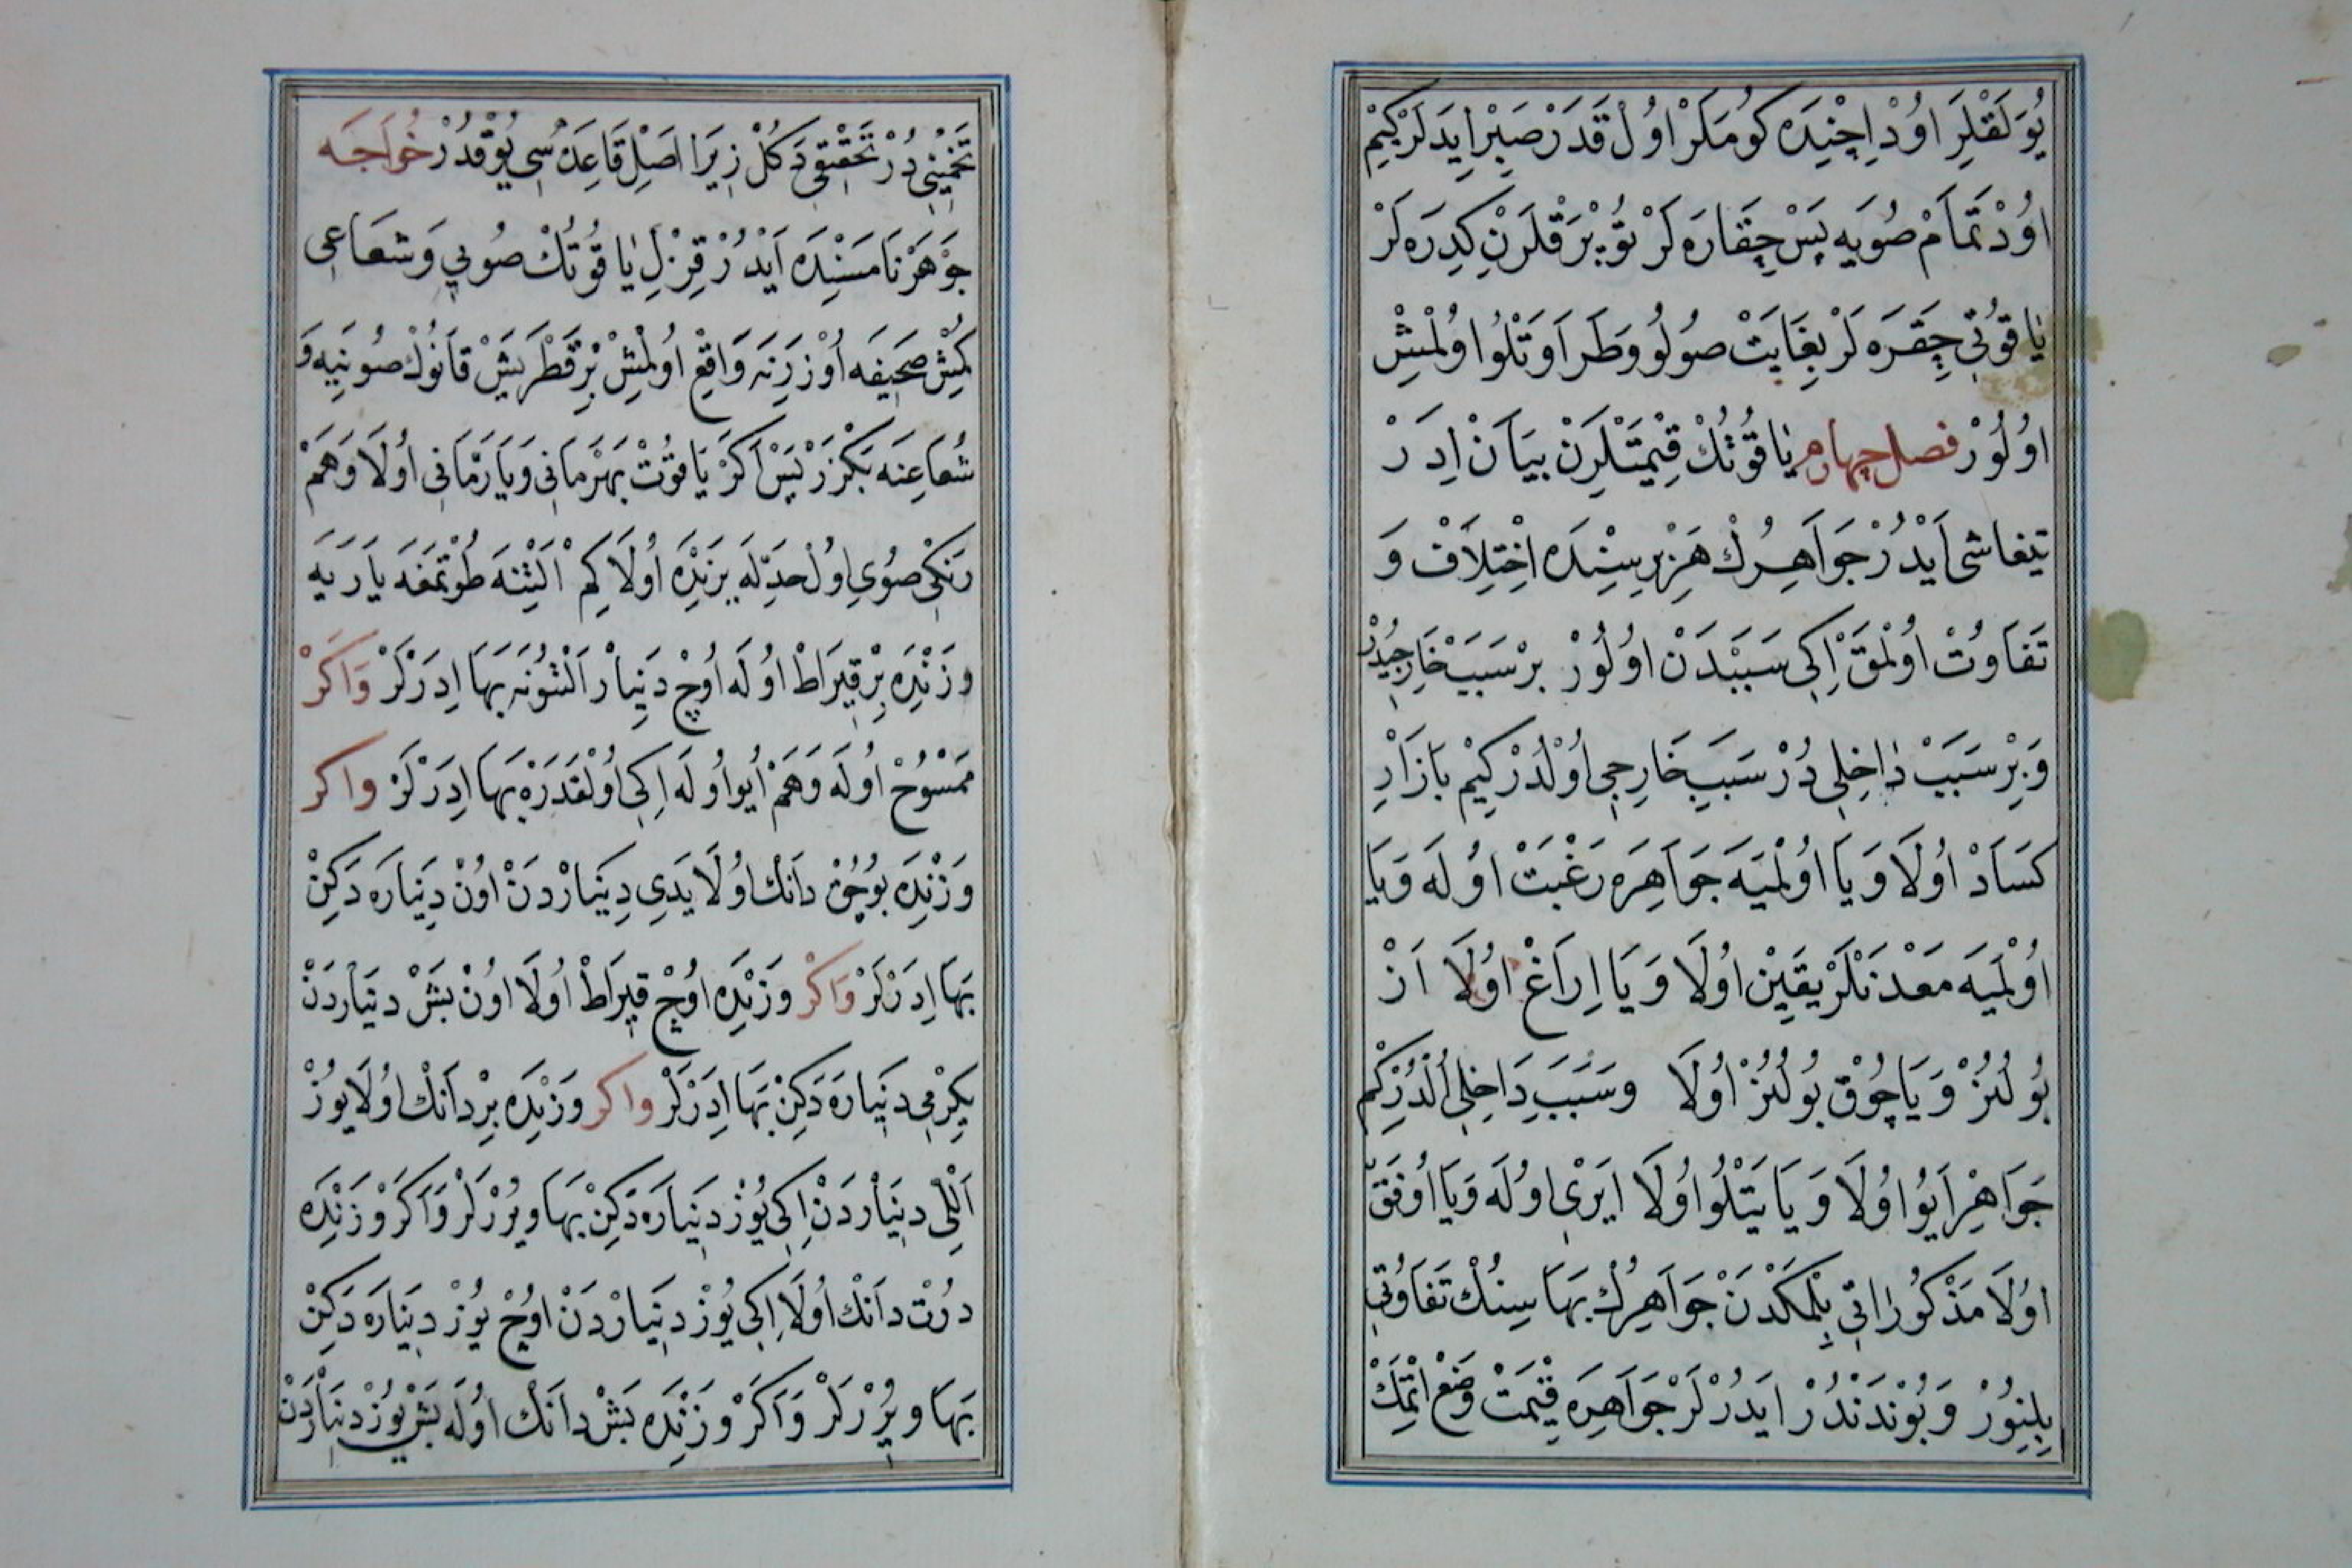 يُوَلَقْلِرَ اوُدْ اِچِنِدَه كُومَكَرْ اوُلْ قَدَرْ صَبِرْ اِيدَلَرْكِيمْ
اوُدْ تَمَامْ صُويَه پَسْ چِقَارَه لَرْ بُو يَرَقْلَرْنِ كِدِرَه لَرْ
يَاقوُتِى چِقَرَه لَرْ بِغَايَتْ صُولُو وَطَرَاوَتْلُو اوُلْمِشْ
اوُلوُرْ فصل چهارم يَاقُوتُكْ قِيْمَتْلَرِنْ بَيَانْ اِدَرْ
تيفاشى اَيْدُرْ جَوَاهِرُكْ هَرْ بِرِسِنْدَه اِخْتِلَافْ وَ
تَفَاوُتْ اوُلْمَقْ اِكِى سَبَبْدَنْ اوُلُورْ بِرْ سَبَبْ خَارِجِيدُرْ
وَبِرْ سَبَبْ دَاخِلِى دُرْ سَبَبِ خَارِجِى اوُلْدُرْكِيمْ بَازَارِ
كَسَادْ اوُلَا وَيَا اوُلْمَيَه جَوَاهِرَه رَغْبَتْ اوُلَه وَيَا
اوُلْمَيَه مَعْدَنْلَرْ يَقِينْ اوُلَا وَيَا اِرَاغْ اوُلَا اَزْ
بُولُنُرْ وَيَا چُوْقْ بُولُنُرْ اوُلَا وسَبَبِ دَاخِلِى اُلْدُرْكِمْ
جَوَاهِرْ اَيُو اوُلَا وَيَا يَتْلُو اوُلَا اِيرِى اوُلَه وَيَا اوُفَقْ
اوُلَا مَذْكُورَاتِى بِلْمَكْدَنْ جَوَاهِرُكْ بَهَاسِنُكْ تَفَاوُتِى
بِلِنوُرْ وَبُونْدَنْدُرْ اَيَدُرْلَرْ جَوَاهِرَه قِيْمَتْ وَضْعْ اتْمَكْ
تَخْمِينِى دُرْ تَحْقِيقِى دَكُلْ زِيرَا اَصِلْ قَاعِدَه سُى يُوْقْدُرْ خُوَاجَه
جَوْهَرْنَامَسِنْدَه اَيْدُرْ قِزِلْ يَاقُوتُكْ صُويِى وَشعَاعِى
كُمِشْ صَحِيفَه اوُزرِنَه وَاقِعْ اوُلْمِشْ بِرْ قَطْرَ يَشْ قَانُوكْ صُوينِيه وَ
شُعَاعِنَه بَكْزَرْ پَسْ اَكَرْ يَاقوُتْ بَهْرَمَانِى وَيَا رُمَّانِى اوُلَا وَهَمْ
رَنكِى صُويِ اوُلْ حَدِّلَه بَرَنْدَه اوُلَا كِمْ اَلْتِنَه طُوْتْمَغَه يَارَيَه
وزَنْدَه بِرْ قِيرَاطْ اوُلَه اوُچْ دِينَارْ اَلْتُونَه بَهَا اِدَرْلَرْ وَاكَرْ
مَمْسُوحْ اوُلَه وَهَمْ اَيُو اوُلَه اِكِى اوُلْقَدَرَه بَهَا اِدَرْلَرْ واكر
وَزْنِدَه بُوچُقْ دَانْكْ اوُلَا يَدِى دِينَارْدَنْ اوُنْ دِينَارَه دَكِنْ
بَهَا اِدَرْلَرْ وَاكَرْ وزَنْدَه اوُچْ قِيرَاطْ اوُلَا اوُنْ بَشْ دِينَارْدَنْ
يِكِرْمِى دِينَارَه دَكِنْ بَهَا اِدَرْلَرْ واكر وَزْنِدَه بِرْ دَانْكْ اوُلَا يوُزْ
اَللِّى دِينَارْدَنْ اِكِى يُوزْ دِينَارَه دَكِنْ بَهَا وِيرُرْلَرْ وَاكَرْ وزَنْدَه
دوُرْت دَانْكْ اوُلَا اِكِى يُوزْ دِينَارْدَنْ اوُچْ يُوزْ دِينَارَه دَكِنْ
بَهَا ويرُرْلَرْ وَاكَرْ وزَنْدَه بَشْ دَانْكْ اوُلَه بَشْ يُوزْ دِينَارْدَنْ